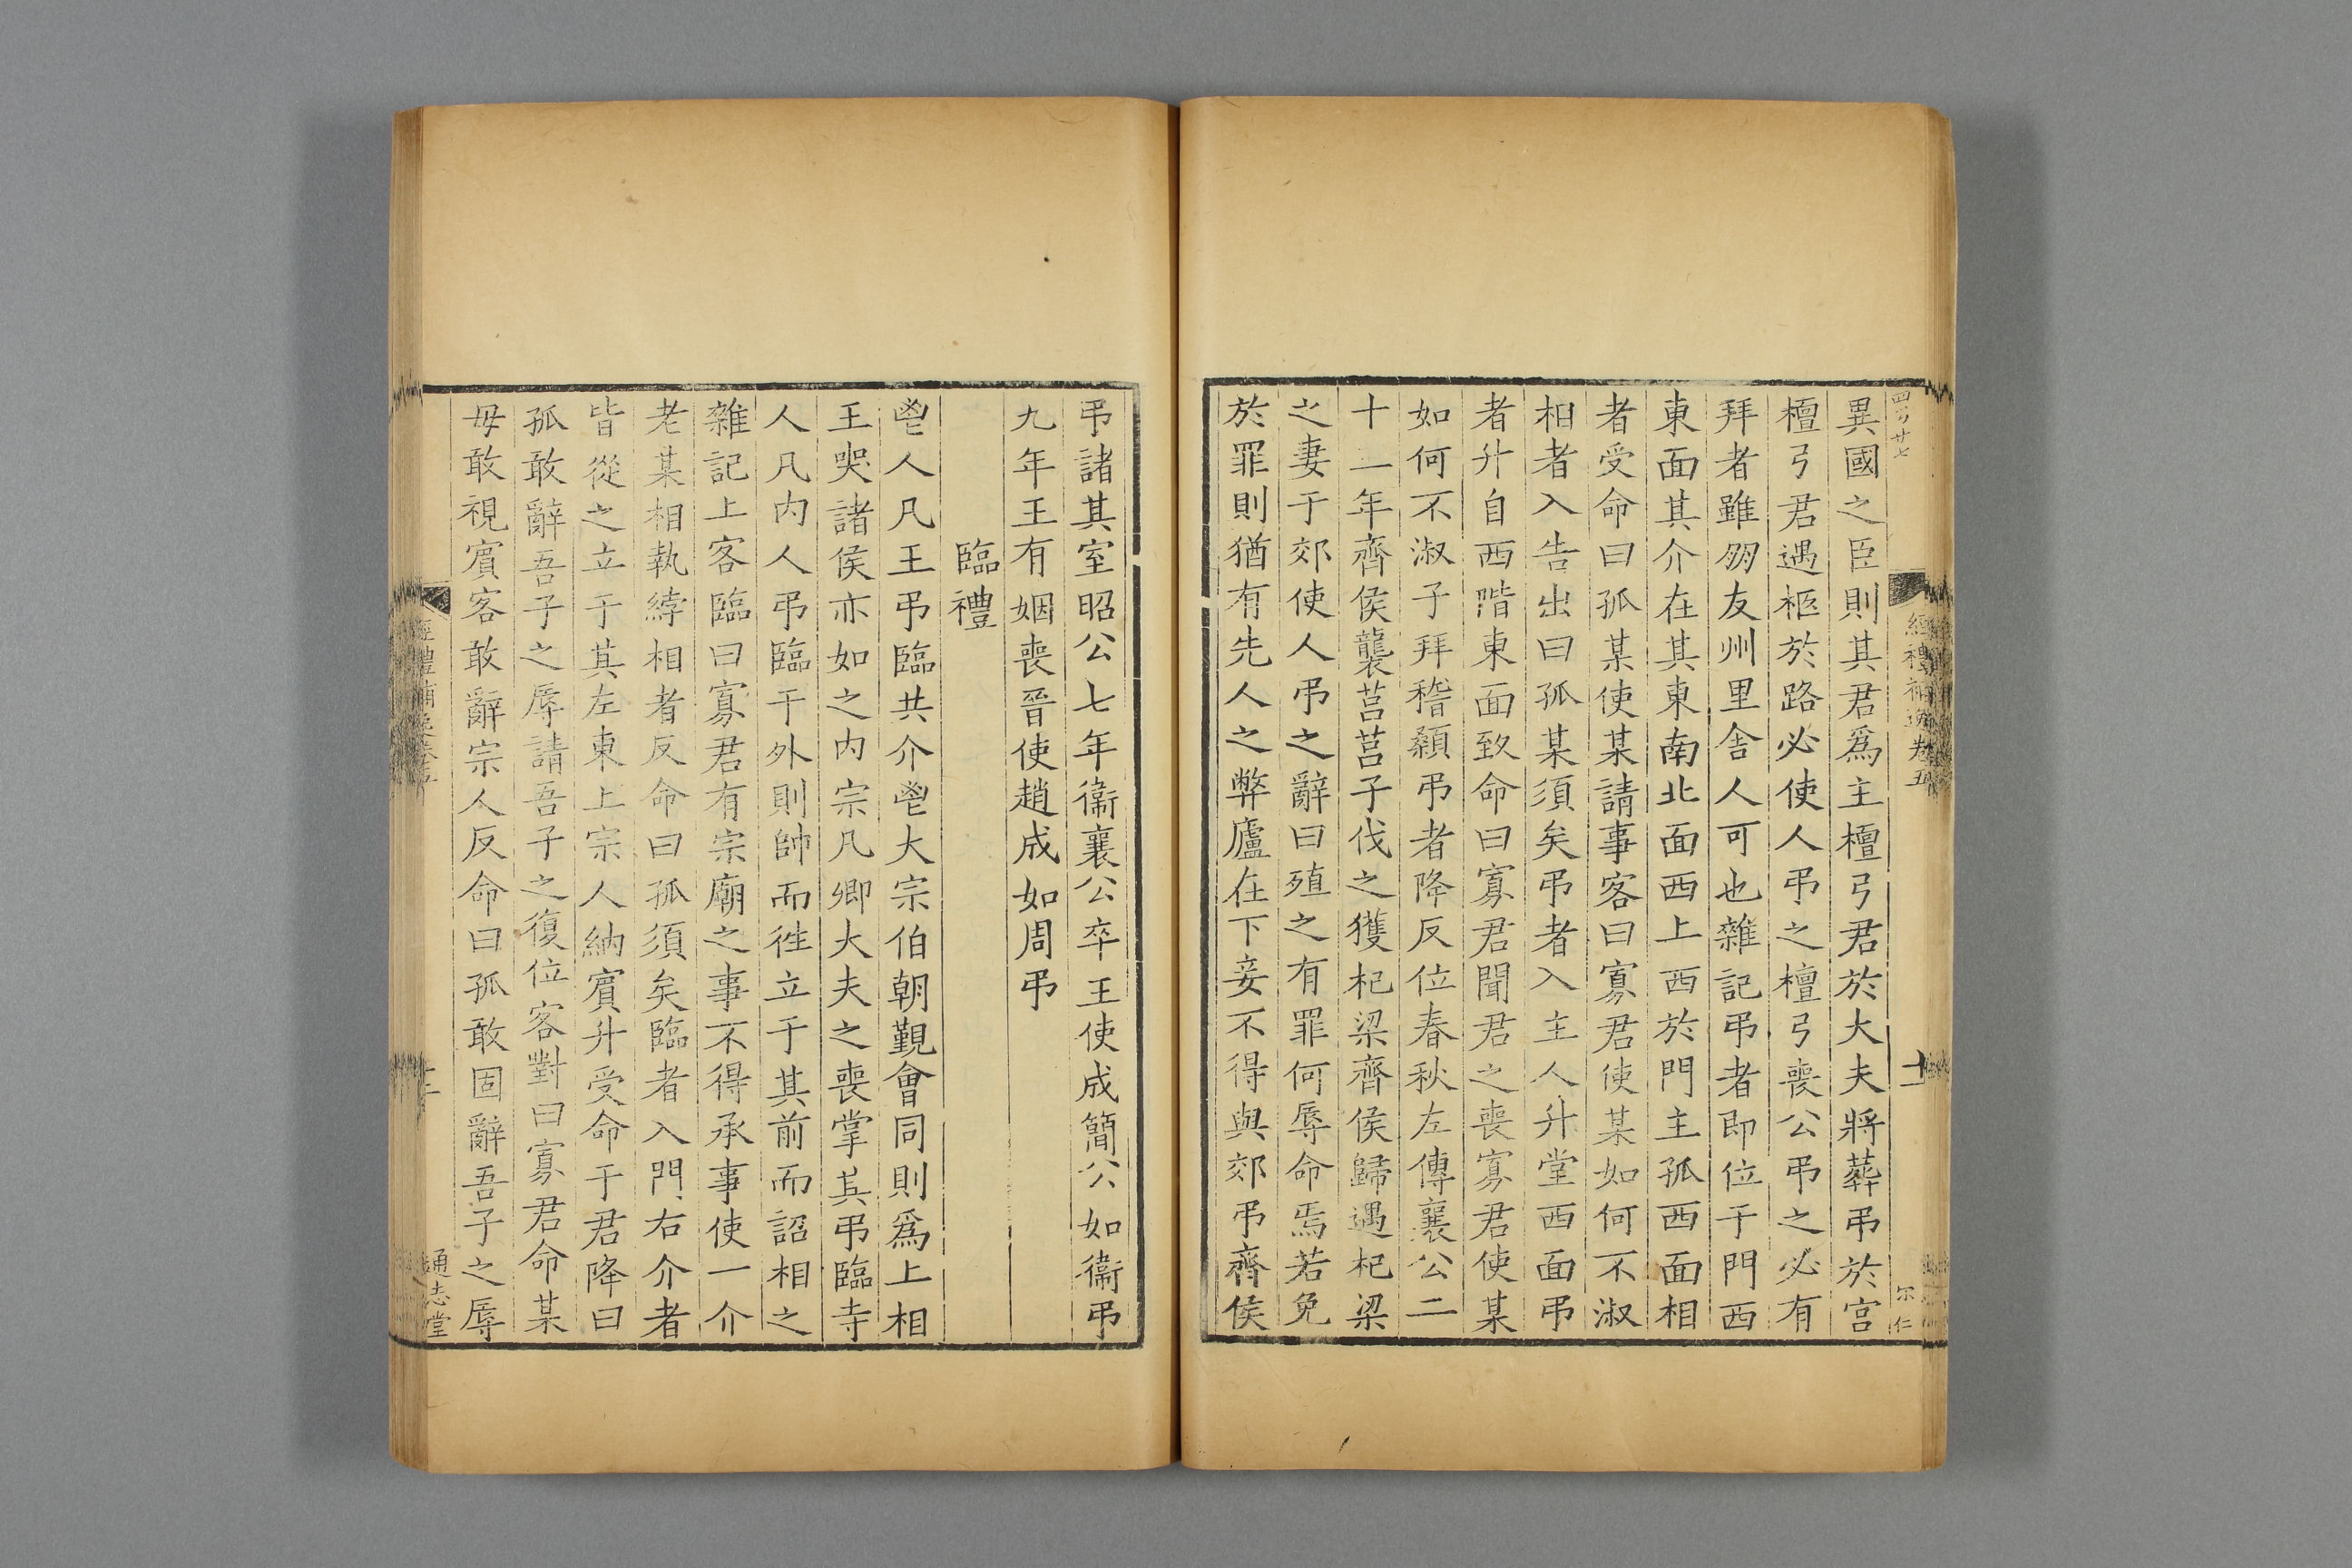 四百廿七
經禮補逸卷五
十一
尔仁
異國之臣則其君爲主檀弓君於大夫將葬弔於宮
檀弓君遇柩於路必使人弔之檀弓喪公弔之必有
拜者雖朋友州里舍人可也雜記弔者即位于門西
東面其介在其東南北面西上西於門主孤西面相
者受命曰孤某使某請事客曰寡君使某如何不淑
相者入告出曰孤某須矣弔者入主人升堂西面弔
者升自西階東面致命曰寡君聞君之喪寡君使某
如何不淑子拜稽顙弔者降反位春秋左傳襄公二
十一年齊侯襲莒莒子伐之獲杞梁齊侯歸遇杞梁
之妻于郊使人弔之辭曰殖之有罪何辱命焉若免
於罪則猶有先人之弊廬在下妾不得與郊弔齊侯
弔諸其室昭公七年衞襄公卒王使成簡公如衞弔
九年王有姻喪晉使趙成如周弔
臨禮
鬯人凡王弔臨共介鬯大宗伯朝覲會同則爲上相
王哭諸侯亦如之内宗凡卿大夫之喪掌其弔臨寺
人凡内人弔臨于外則帥而往立于其前而詔相之
雜記上客臨曰寡君有宗廟之事不得承事使一介
老某相執綍相者反命曰孤須矣臨者入門右介者
皆從之立于其左東上宗人納賓升受命于君降曰
孤敢辭吾子之辱請吾子之復位客對曰寡君命某
毋敢視賓客敢辭宗人反命曰孤敢固辭吾子之辱
經禮補逸卷五
通志堂